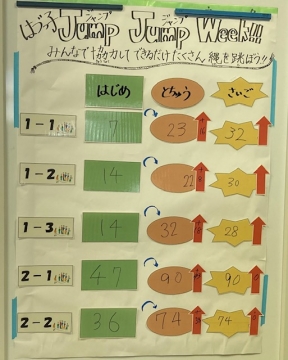 はづっ子 Jump Jump Week!!
ジャンプ ジャンプ
みんなで協力して できるだけたくさん 縄を跳ぼう!!
はじめ とちゅう さいご
1-1 7 23 32
1-2 14 22 30
1-3 14 32 28
2-1 47 90 90
2-2 36 74 74